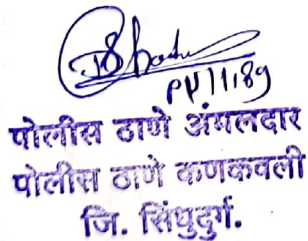 पोलीस ठाणे अंमलदार
पोलीस ठाणे कणकवली
जि. सिंधुदुर्ग.